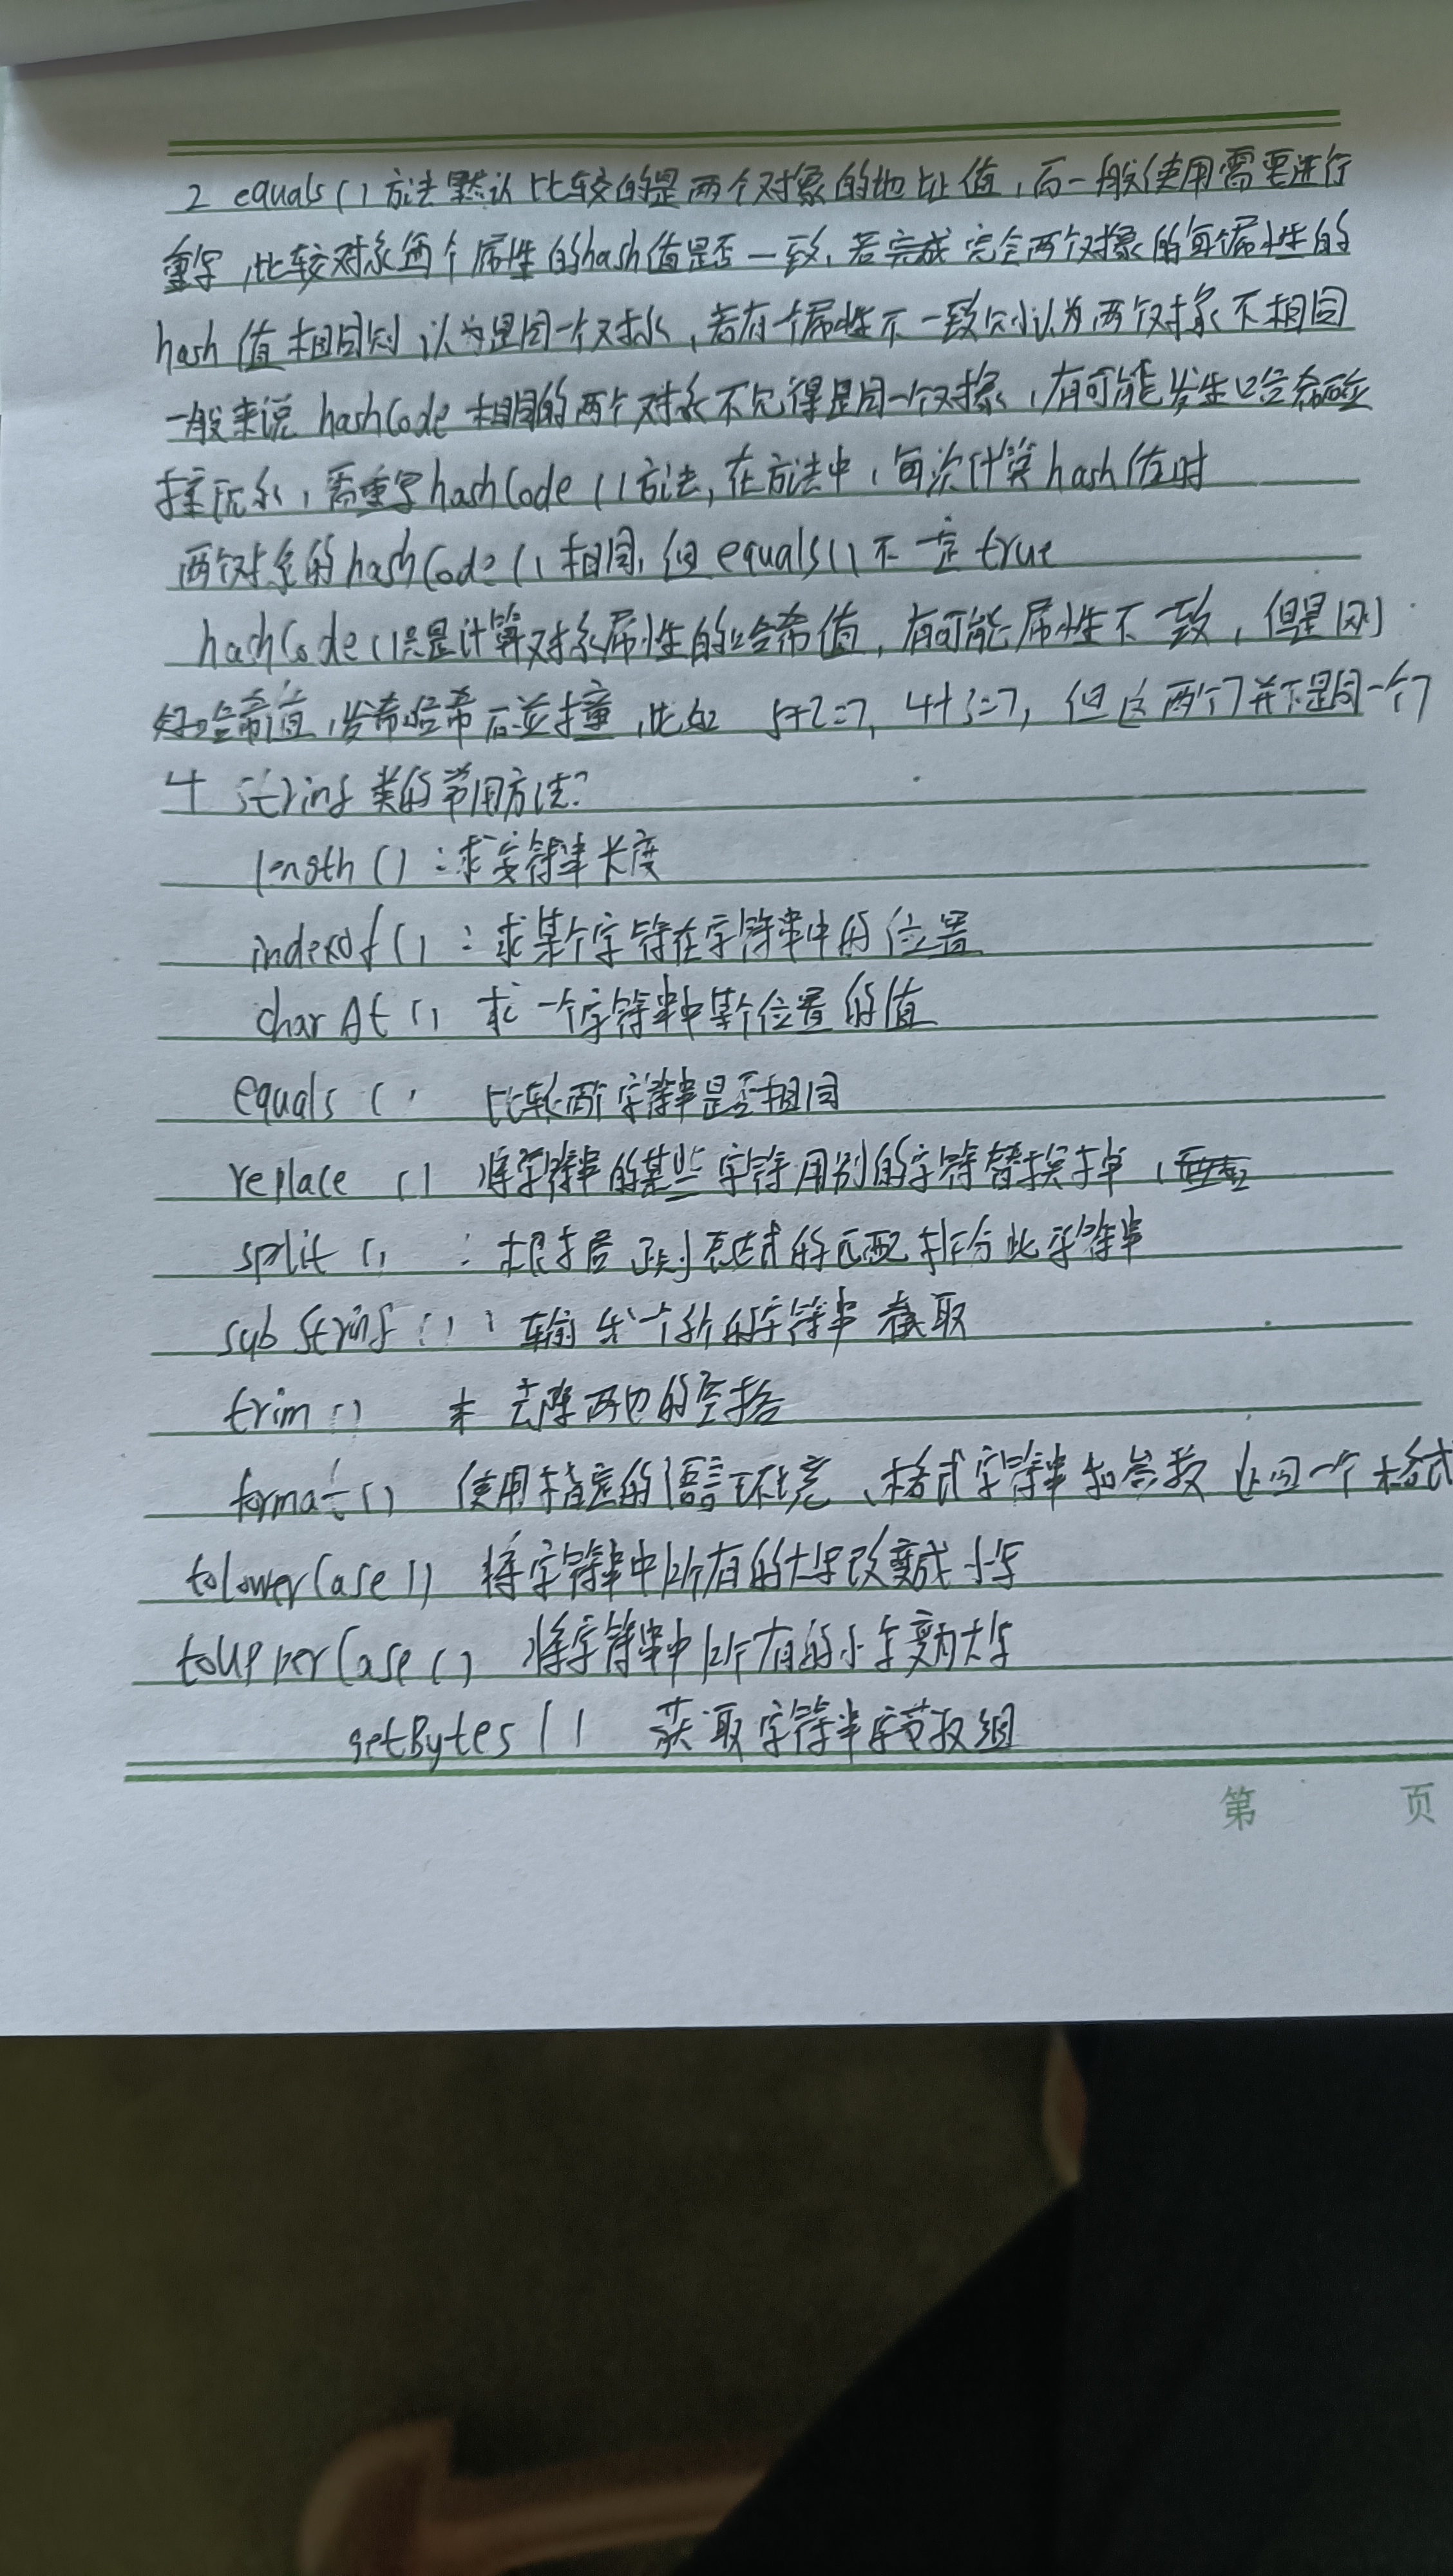 2 equals()方法默认比较的是两个对象的地址值,而一般使用需要进行
重写,比较对象每个属性的hash值是否一致,若完成完全两个对象的每个属性的
hash值相同则认为是同一个对象,若有一个属性不一致则认为两个对象不相同
一般来说hashCode相同的两个对象不见得是同一个对象,有可能发生哈希碰
撞,需重写hashCode()方法,在方法中,每次计算hash值时
两个对象的hashCode()相同,但equals()不一定true
hashCode()只是计算对象属性的哈希值,有可能属性不一致,但是刚
好哈希值,发希哈希碰撞,比如 5+2=7, 4+3=7, 但这两个7并不是同一个7
4 String类的常用方法?
length():求字符串长度
indexOf():求某个字符在字符串中的位置
charAt() 求一个字符串中某个位置的值
equals() 比较两个字符串是否相同
replace() 将字符串的某些字符用别的字符替换掉,
split() :根据正则表达式的匹配拆分此字符串
subString():输出一个新的字符串 截取
trim() 去除两边的空格
format() 使用指定的语言环境、格式字符串和参数返回一个格式
toLowerCase() 将字符串中所有的大写改变成小写
toUpperCase() 将字符串中所有的小写变为大写
getBytes() 获取字符串字节数组
第 页